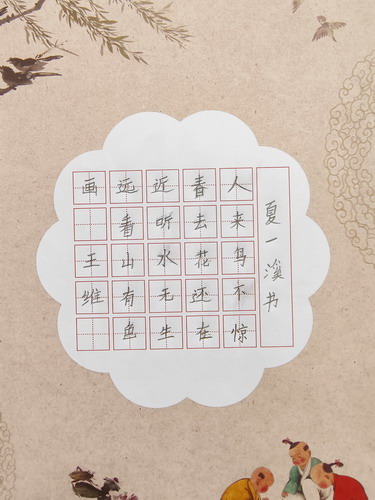 画 王维
远看山有色
近听水无生
春去花还在
人来鸟不惊
夏一溪书